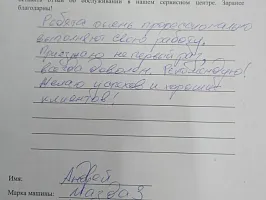 обслуживании в нашем сервисном центре. Заранее
благодарны!
Ребята очень профессионально
выполняют свою работу.
Приезжаю не первый раз,
всегда доволен. Рекомендую!
Желаю успехов и хороших
клиентов!
Имя: Андрей
Марка машины: Мазда 3